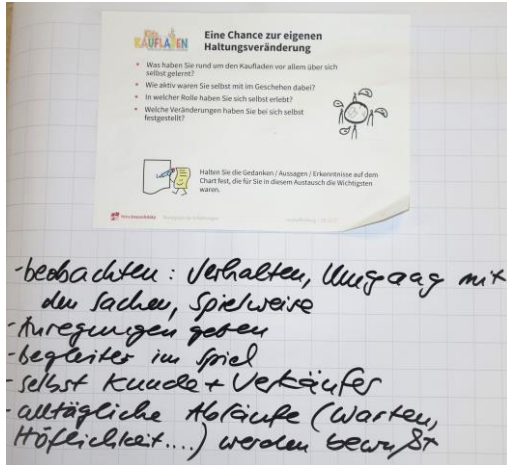 KAUFLADEN
Eine Chance zur eigenen
Haltungsveränderung
• Was haben Sie rund um den Kaufladen vor allem über sich
selbst gelernt?
• Wie aktiv waren Sie selbst mit im Geschehen dabei?
• In welcher Rolle haben Sie sich selbst erlebt?
• Welche Veränderungen haben Sie bei sich selbst
festgestellt?
Halten Sie die Gedanken / Aussagen / Erkenntnisse auf dem
Chart fest, die für Sie in diesem Austausch die Wichtigsten
waren.
- beobachten: Verhalten, Umgang mit
den Sachen, Spielweise
- Anregungen geben
- begleiter im Spiel
- selbst Kunde + Verkäufer
- alltägliche Abläufe (Warten,
Höflichkeit....) werden bewußt